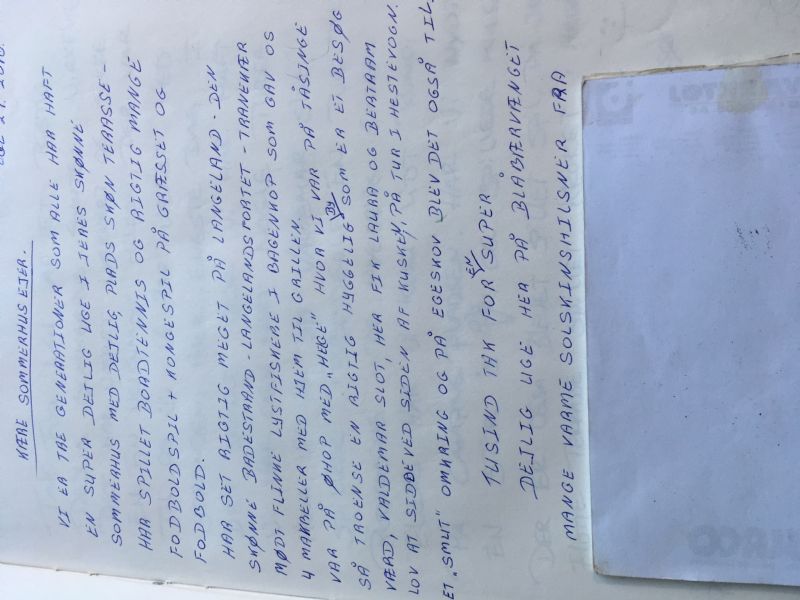 KÆRE SOMMERHUS EJER.
VI ER TRE GENERATIONER SOM ALLE HAR HAFT
EN SUPER DEJLIG UGE I JERES SKØNNE
SOMMERHUS MED DEJLIG PLADS SKØN TERASSE -
HAR SPILLET BORDTENNIS OG RIGTIG MANGE
FODBOLDSPIL + KONGESPIL PÅ GRÆSSET OG
FODBOLD.
HAR SET RIGTIG MEGET PÅ LANGELAND - DEN
SKØNNE BADESTRAND - LANGELANDSFORTET - TRANEKÆR
MØDT FLINKE LYSTFISKERE I BAGENKOP SOM GAV OS
4 MAKRELLER MED HJEM TIL GRILLEN.
VAR PÅ ØHOP MED „HELGE" HVOR VI VAR PÅ TÅSINGE
SÅ TROENSE EN RIGTIG HYGGELIG BY SOM ER ET BESØG
VÆRD, VALDEMAR SLOT, HER FIK LAURA OG BERTRAM
LOV AT SIDDE VED SIDEN AF KUSKEN, PÅ TUR I HESTEVOGN.
ET „SMUT" OMKRING OG PÅ EGESKOV BLEV DET OGSÅ TIL.
TUSIND TAK FOR EN SUPER
DEJLIG UGE HER PÅ BLÅBÆRVÆNGET
MANGE VARME SOLSKINSHILSNER FRA